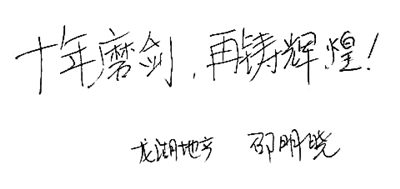 十年磨剑，再铸辉煌！
龙湖地产 邵明晓